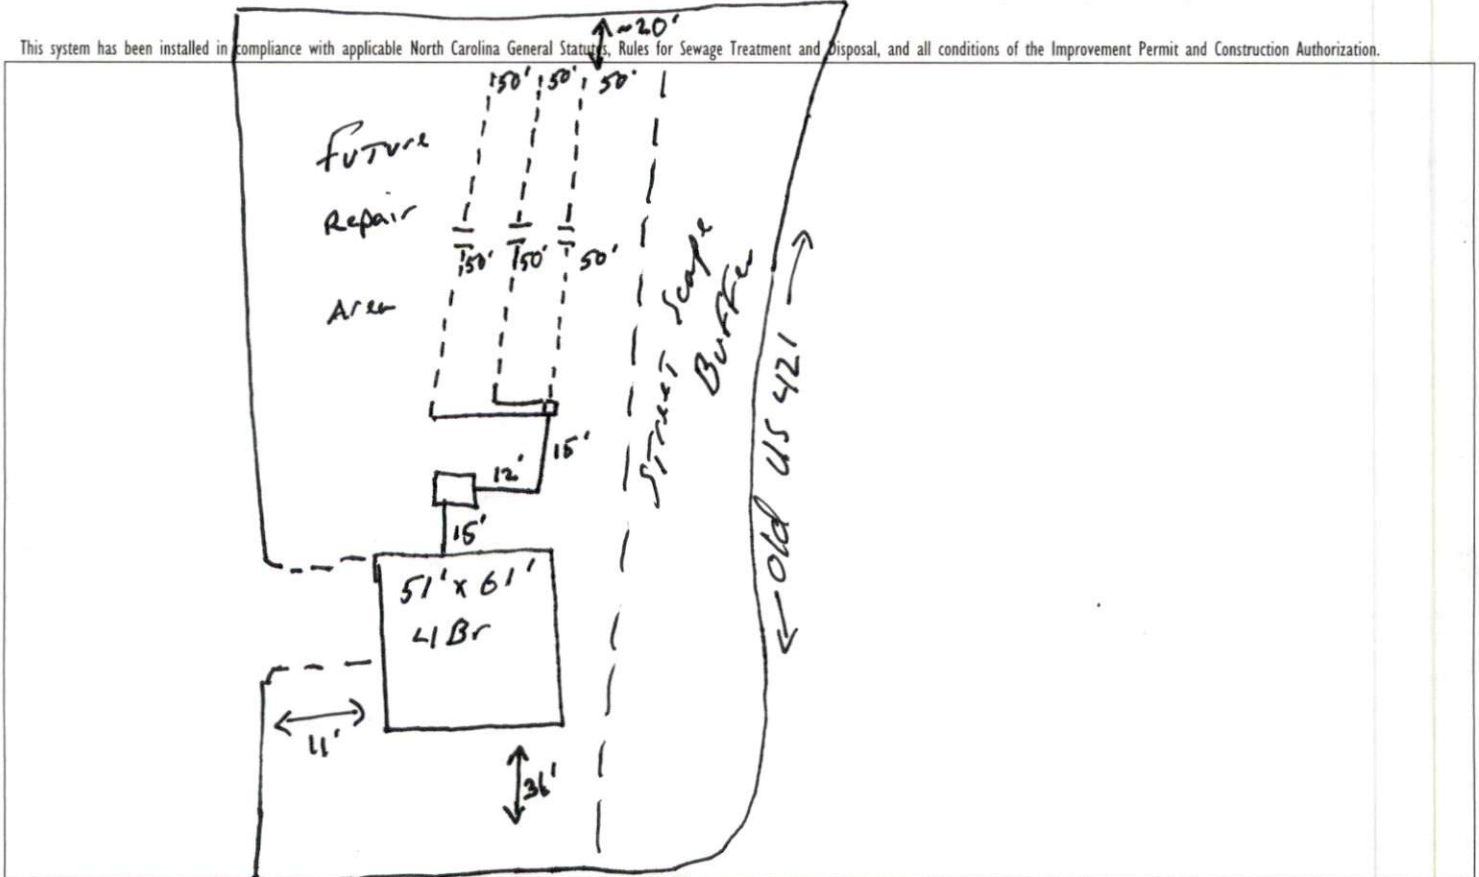 ~20'
This system has been installed in compliance with applicable North Carolina General Statutes, Rules for Sewage Treatment and Disposal, and all conditions of the Improvement Permit and Construction Authorization.
50' 50' 50'
Future
Repair
Area
50' 50' 50'
Street Scape
Buffer
Old US 421
15'
12'
15'
51' x 61'
4 Br
11'
36'